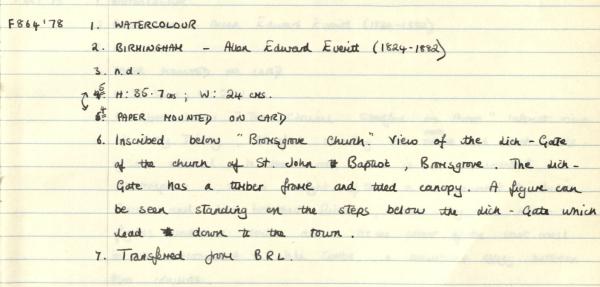 F864'78 1. WATERCOLOUR
2. BIRMINGHAM - Allan Edward Everitt (1824-1882)
3. n.d.
5. H: 35.7cms; W: 24 cms.
4. PAPER MOUNTED ON CARD
6. Inscribed below "Bromsgrove Church." View of the Lich-Gate
of the church of St. John Baptist, Bromsgrove. The Lich-
Gate has a timber frame and tiled canopy. A figure can
be seen standing on the steps below the Lich-Gate which
lead down to the town.
7. Transferred from BRL.